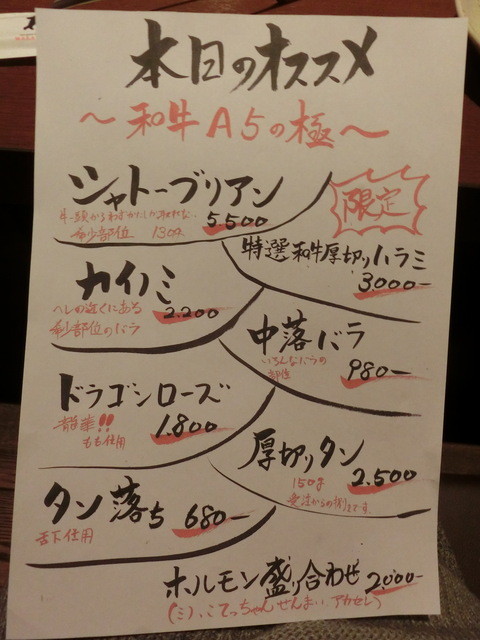 本日のオススメ
～和牛A5の極～
シャトーブリアン
牛一頭からわずかしか取れない
希少部位 130g
5500
限定
特選和牛厚切りハラミ
3000-
カイノミ
ヘレの近くにある
希少部位のバラ
2.200
中落バラ
いろんなバラの
部位
980-
ドラゴンローズ
もも使用
1.800
厚切りタン
150g
受注からの切りです。
2.500
タン落ち
舌下使用
680-
ホルモン盛り合わせ 2.000-
(ミノ、こてっちゃん、せんまい、アカセン)